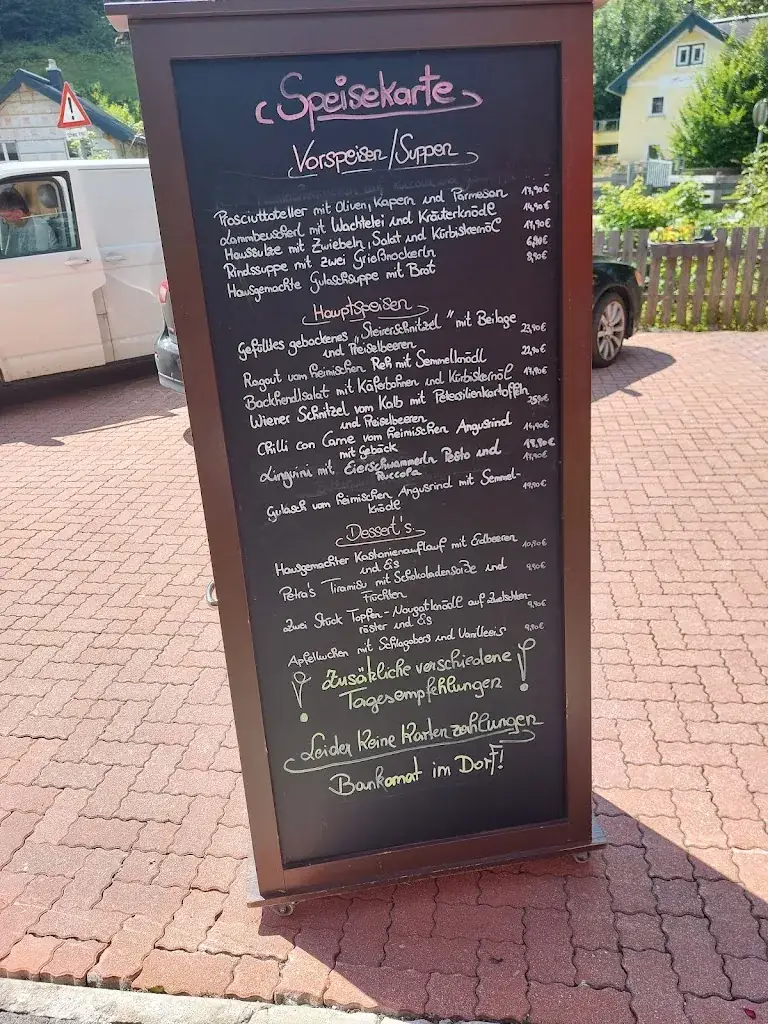 Speisekarte
Vorspeisen/Suppen
Prosciuttoteller mit Oliven, Kapern und Parmesan
Lammbeuscherl mit Wachtelei und Kräuterknödl 14,90€
Haussulze mit Zwiebeln, Salat und Kürbiskernöl 11,90€
Rindssuppe mit zwei Grießnockerln 6,90€
Hausgemachte Gulaschsuppe mit Brot 8,90€
Hauptspeisen
Gefülltes gebackenes „Steirerschnitzel" mit Beilage 23,90€
und Preiselbeeren
Ragout vom heimischen Reh mit Semmelknödl 22,90€
Backhendlsalat mit Käferbohnen und Kürbiskernöl
Wiener Schnitzel vom Kalb mit Petersilienkartoffeln
und Preiselbeeren
Chilli con Carne vom heimischen Angusrind 14,90€
mit Gebäck
Linguini mit Eierschwammerln Pesto und
Ruccola
Gulasch vom heimischen Angusrind mit Semmel- 19,90€
knödl
Dessert's
Hausgemachter Kastanienauflauf mit Erdbeeren 10,90€
und Eis
Petra's Tiramisu mit Schokoladensoße und 9,90€
Früchten
Zwei Stück Topfen-Nougatknödl auf Zwetschken- 9,90€
röster und Eis
Apfelkuchen mit Schlagobers und Vanilleeis 9,90€
! Zusätzliche verschiedene !
Tagesempfehlungen
Leider keine Kartenzahlungen
Bankomat im Dorf!